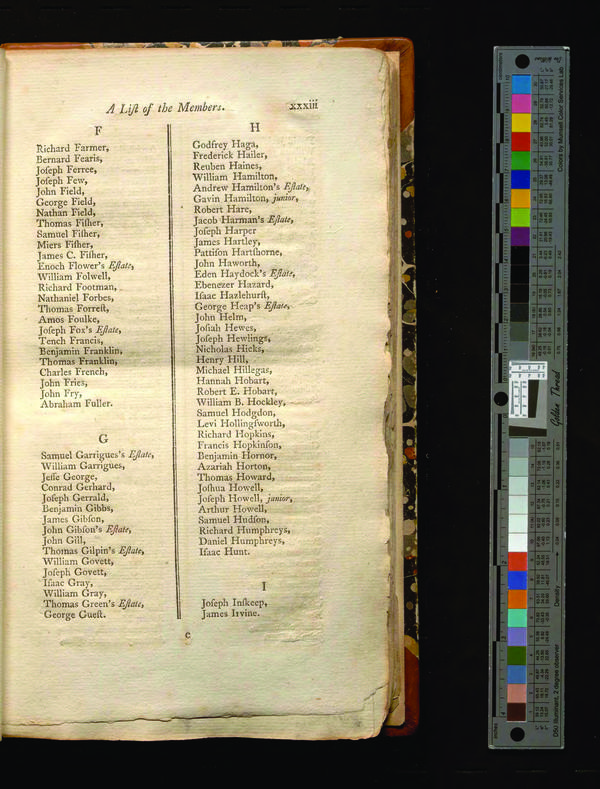 A Liſt of the Members. xxxiii
F
Richard Farmer,
Bernard Fearis,
Joſeph Ferree,
Joſeph Few,
John Field,
George Field,
Nathan Field,
Thomas Fiſher,
Samuel Fiſher,
Miers Fiſher,
James C. Fiſher,
Enoch Flower's Eſtate,
William Folwell,
Richard Footman,
Nathaniel Forbes,
Thomas Forreſt,
Amos Foulke,
Joſeph Fox's Eſtate,
Tench Francis,
Benjamin Franklin,
Thomas Franklin,
Charles French,
John Fries,
John Fry,
Abraham Fuller.
G
Samuel Garrigues's Eſtate,
William Garrigues,
Jeſſe George,
Conrad Gerhard,
Joſeph Gerrald,
Benjamin Gibbs,
James Gibſon,
John Gibſon's Eſtate,
John Gill,
Thomas Gilpin's Eſtate,
William Govett,
Joſeph Govett,
Iſaac Gray,
William Gray,
Thomas Green's Eſtate,
George Gueſt.
H
Godfrey Haga,
Frederick Hailer,
Reuben Haines,
William Hamilton,
Andrew Hamilton's Eſtate,
Gavin Hamilton, junior,
Robert Hare,
Jacob Harman's Eſtate,
Joſeph Harper
James Hartley,
Pattiſon Hartſhorne,
John Haworth,
Eden Haydock's Eſtate,
Ebenezer Hazard,
Iſaac Hazlehurſt,
George Heap's Eſtate,
John Helm,
Joſiah Hewes,
Joſeph Hewlings,
Nicholas Hicks,
Henry Hill,
Michael Hillegas,
Hannah Hobart,
Robert E. Hobart,
William B. Hockley,
Samuel Hodgdon,
Levi Hollingſworth,
Richard Hopkins,
Francis Hopkinſon,
Benjamin Hornor,
Azariah Horton,
Thomas Howard,
Joſhua Howell,
Joſeph Howell, junior,
Arthur Howell,
Samuel Hudſon,
Richard Humphreys,
Daniel Humphreys,
Iſaac Hunt.
I
Joſeph Inſkeep,
James Irvine.
c
Colors by Munsell Color Services Lab
Golden Thread
Density
D50 Illuminant, 2 degree observer